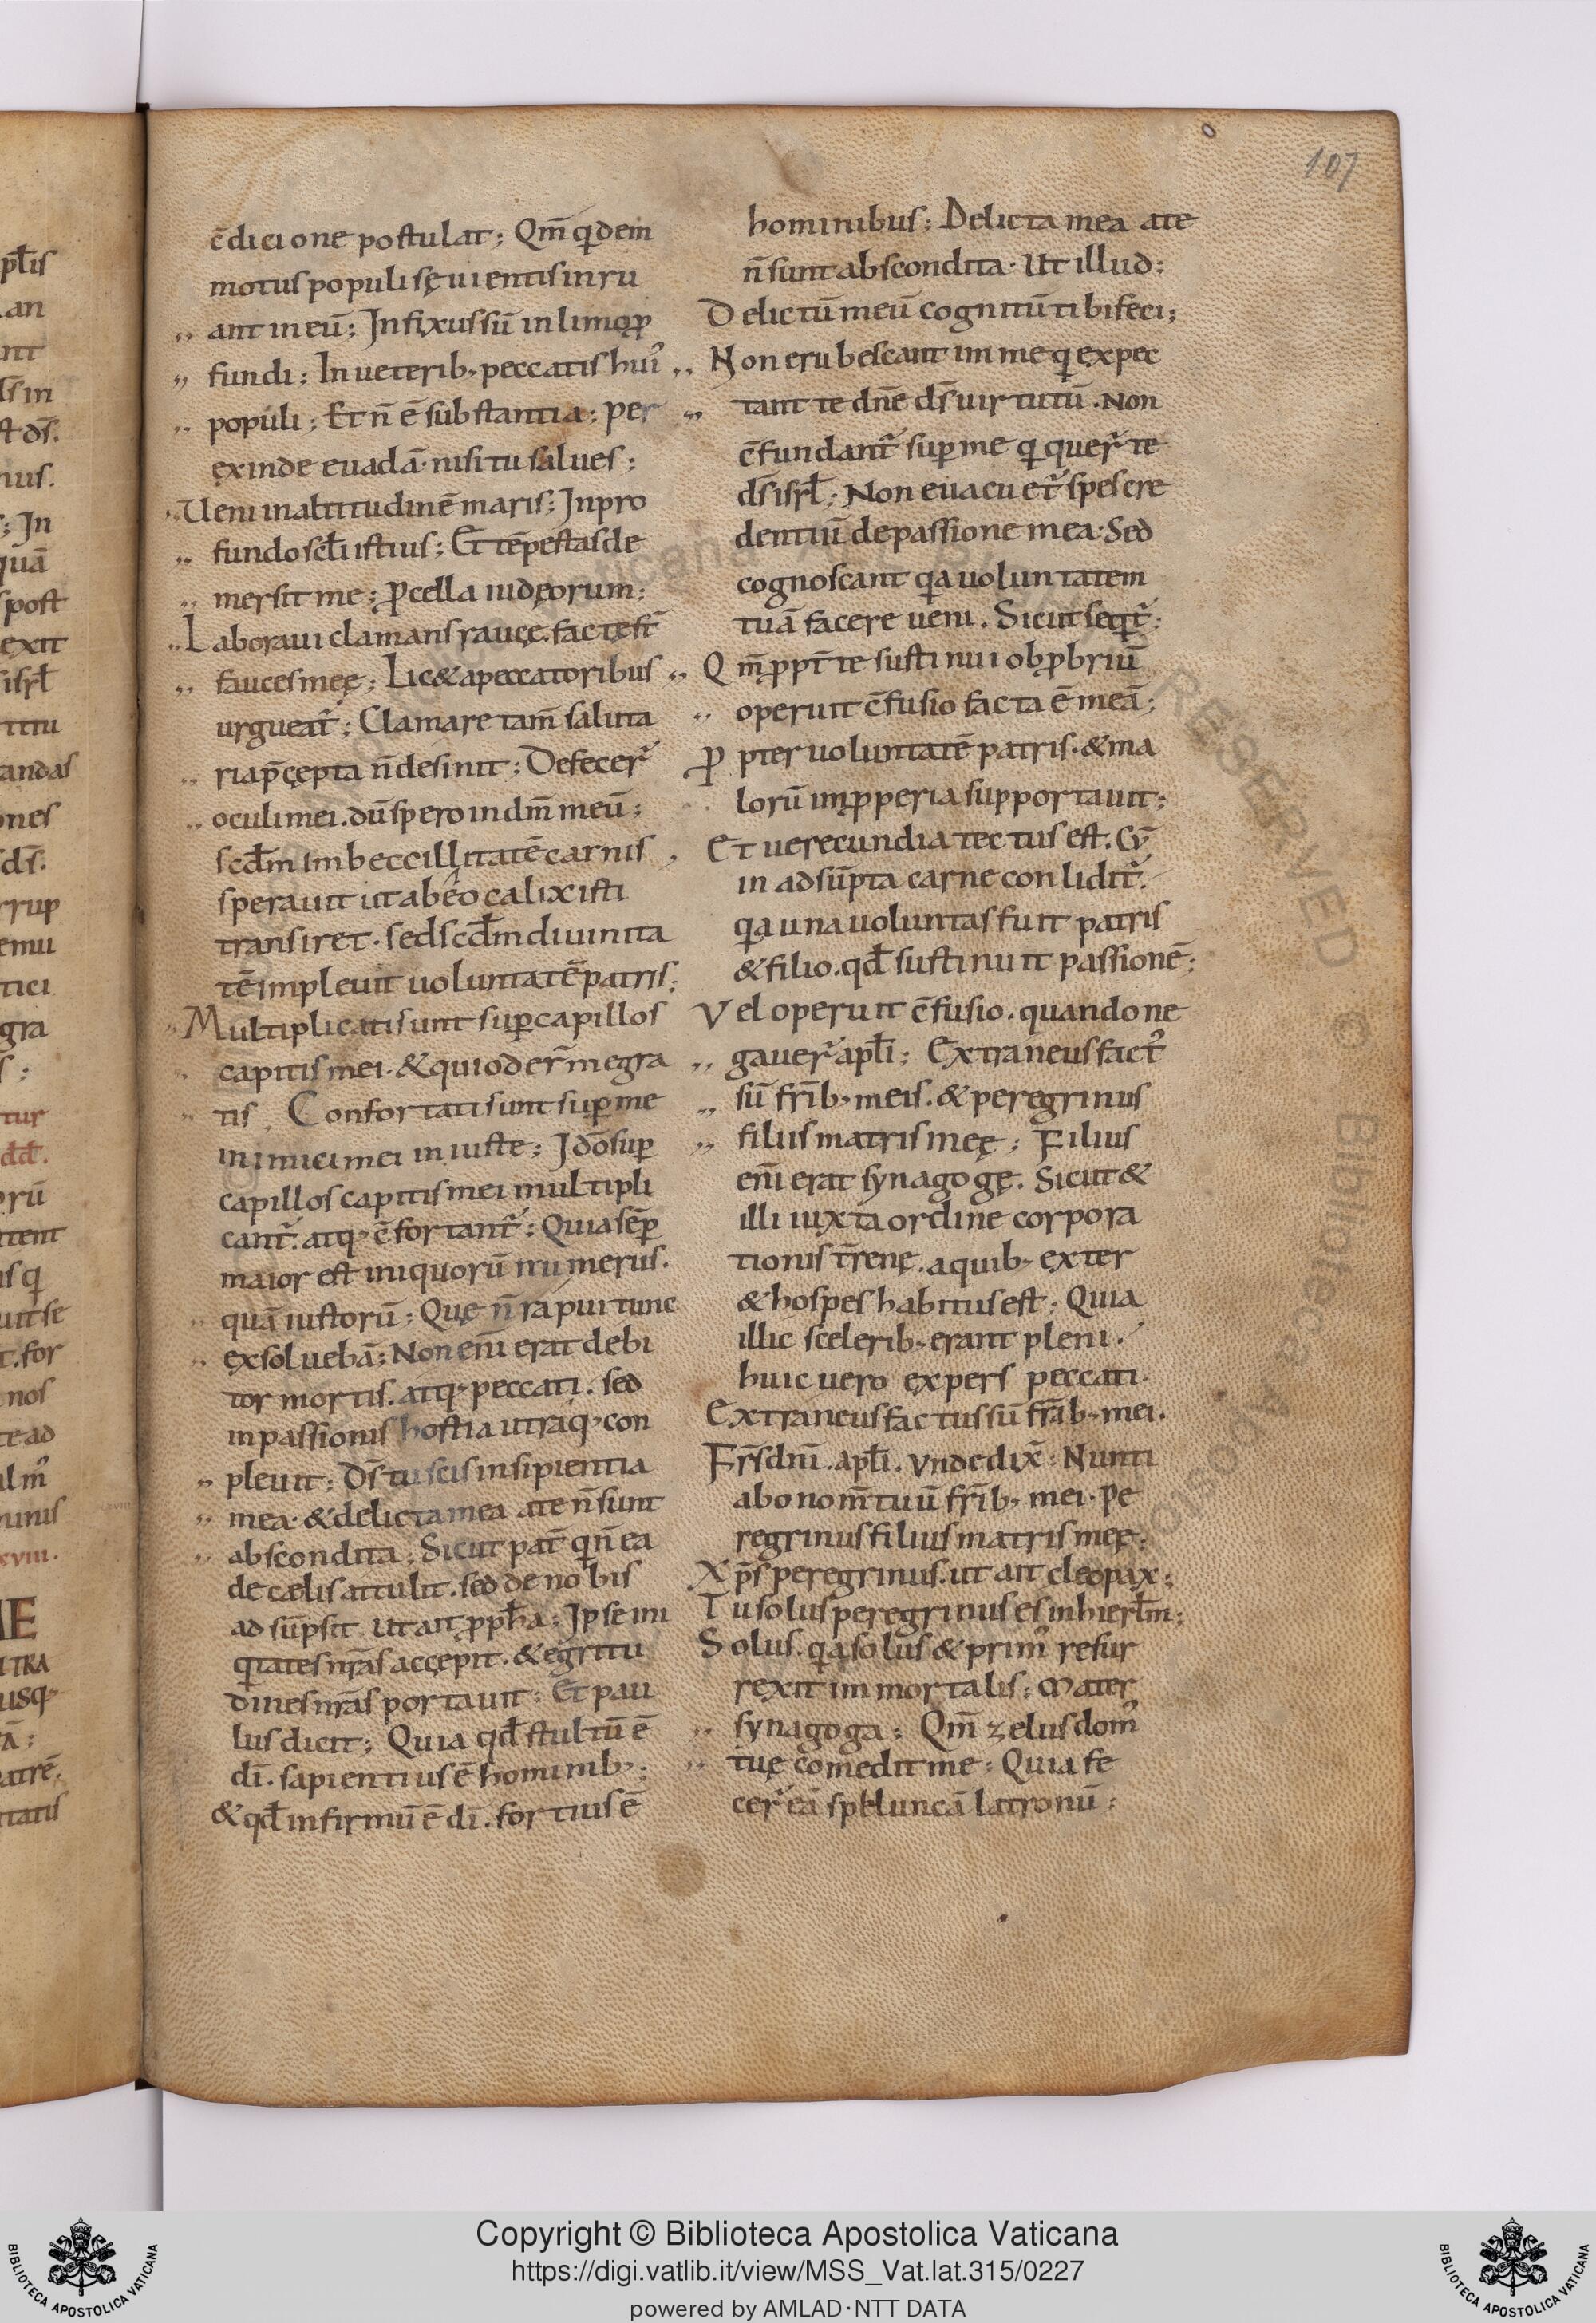 107
c̄dicione postulat; Qm̄ qdem
motus populi sęuientis inru
ant in eū; Infixus sū in limo ꝓ
fundi; In ueterib; peccatis hui᾽
populi; Et n̄ ē substantia; per
exinde euadā. nisi tu salues;
Ueni in altitudinē maris; In pro
fundo scłi istius; Et tēpestas de
mersit me; ꝓcella iudęorum;
Laboraui clamans raucę. factę st̄
fauces meę; Lic& a peccatoribus
urgueat᾽; Clamare tam̄ saluta
ria p̄cępta n̄ desinit; Defecer᾽
oculi mei. dū spero in dm̄ meū;
scđm imbeccillitatē carnis
sperauit ut ab eo calix isti
transiret. sed scđm diuinita
tē impleuit uoluntatē patris;
Multiplicati sunt suꝑ capillos
capitis mei. & qui oder̄ me gra
tis. Confortati sunt suꝑ me
inimici mei iniuste; Idō suꝑ
capillos capitis mei multipli
cant᾽. atq; c̄fortant᾽; Quia sēꝑ
maior est iniquorū numerus.
quā iustorū; Quę n̄ rapui tunc
exsoluebā; Non eni̅ erat debi
tor mortis. atq; peccati. sed
in passionis hostia utraq; con
pleuit; Ds̄ tu scis insipientia
mea. & delicta mea a te n̄ sunt
abscondita; Sicut pat̄ q n̄ ea
de cęlis attulit. sed de nobis
adsūpsit. Ut ait ꝓph̄a; Ipse ini
qitates nr̄as accępit. & egritu
dines nr̄as portauit; Et pau
lus dicit; Quia qđ stultū ē
dī. sapientius ē hominib;;
& qđ infirmū ē dī. fortius ē
hominibus; Delicta mea a te
n̄ sunt abscondita. Ut illud;
Delictū meū cognitū tibi feci;
Non erubescant in me q expec
tant te dn̄e ds̄ uirtutū. Non
c̄fundant᾽ suꝑ me q quer᾽ te
ds̄ isrł; Non euacuet᾽ spes cre
dentiū de passione mea. Sed
cognoscant qa uoluntatem
tuā facere ueni. Sicut seqt᾽;
Qm̄ ꝓpt̄ te sustinui obꝓbriū
operuit c̄fusio facta ē meā;
ꝓpter uoluntatē patris. & ma
lorū imꝓperia supportauit;
Et uerecundia tectus est. Cū
in adsūpta carne conlidit᾽.
qa una uoluntas fuit patris
& filio. qđ sustinuit passionē;
Vel operuit c̄fusio. quando ne
gauer᾽ aptłi; Extraneus fact᾽
sū fr̄ib; meis. & peregrinus
filius matris meę; Filius
eni̅ erat synagogę. Sicut &
illi iuxta ordine corpora
tionis t̄renę. a quib; exter
& hospes habitus est; Quia
illic scelerib; erant pleni.
huic uero expers peccati.
Extraneus factus sū fr̄ib; mei.
Fr̄s dnī. apłi. Unde dix̄; Nunti
abo nom̄ tuū fr̄ib; mei. Pe
regrinus filius matris meę;
Xp̄s peregrinus. ut ait cleopax;
Tu solus peregrinus es in hierłm;
Solus. qa solus & prim᾽ resur
rexit immortalis; Mater
synagoga; Qm̄ zelus dom᾽
tuę comedit me; Quia fe
cer᾽ eā speluncā latronū;
Copyright © Biblioteca Apostolica Vaticana
https://digi.vatlib.it/view/MSS_Vat.lat.315/0227
powered by AMLAD·NTT DATA
BIBLIOTECA APOSTOLICA VATICANA
BIBLIOTECA APOSTOLICA VATICANA